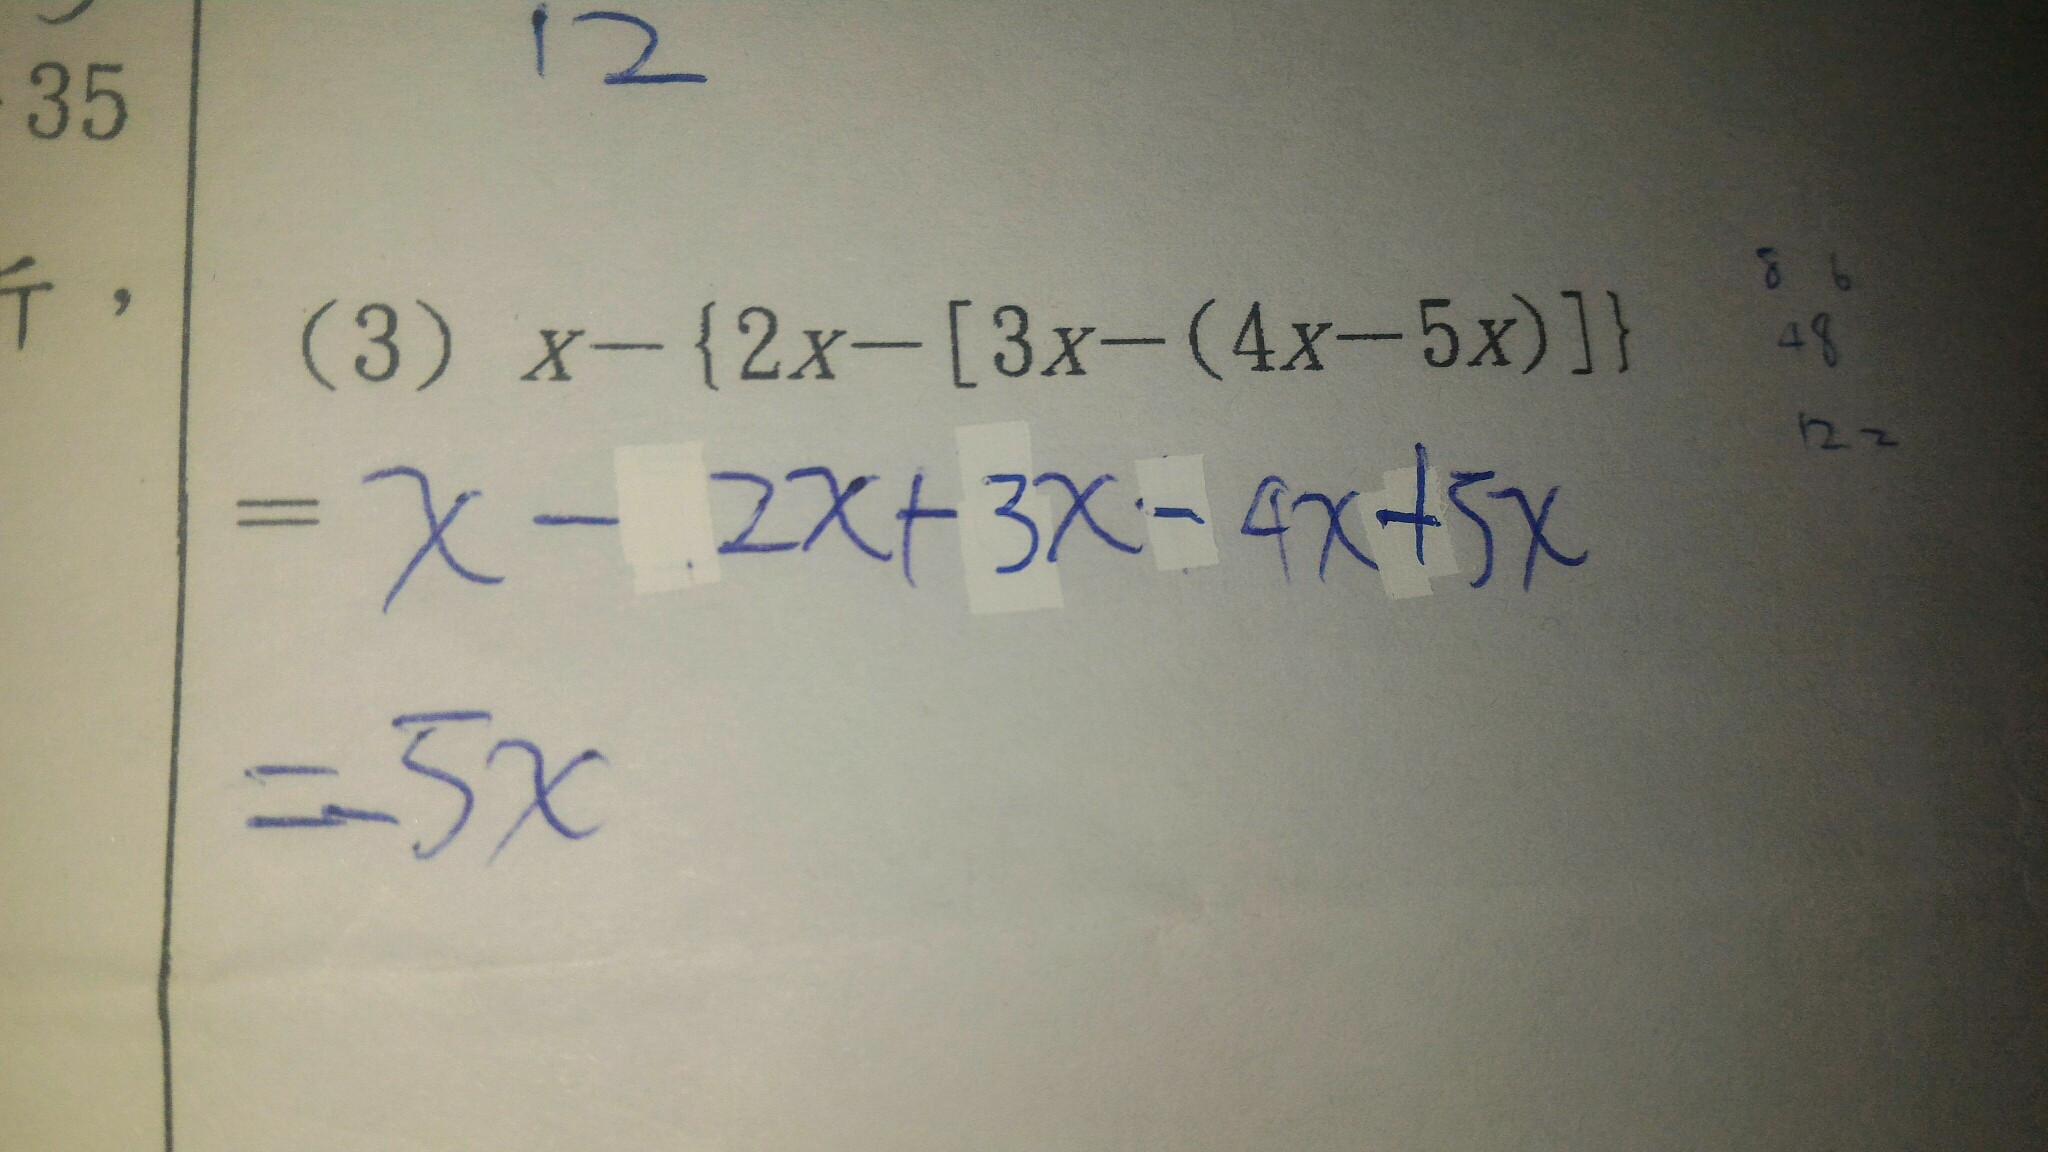 12
35
(3) x－{2x－[3x－(4x－5x)]}
8 6
48
12 2
= x - 2x+3x - 4x+5x
= -5x